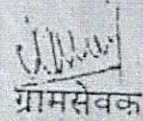 ग्रामसेवक